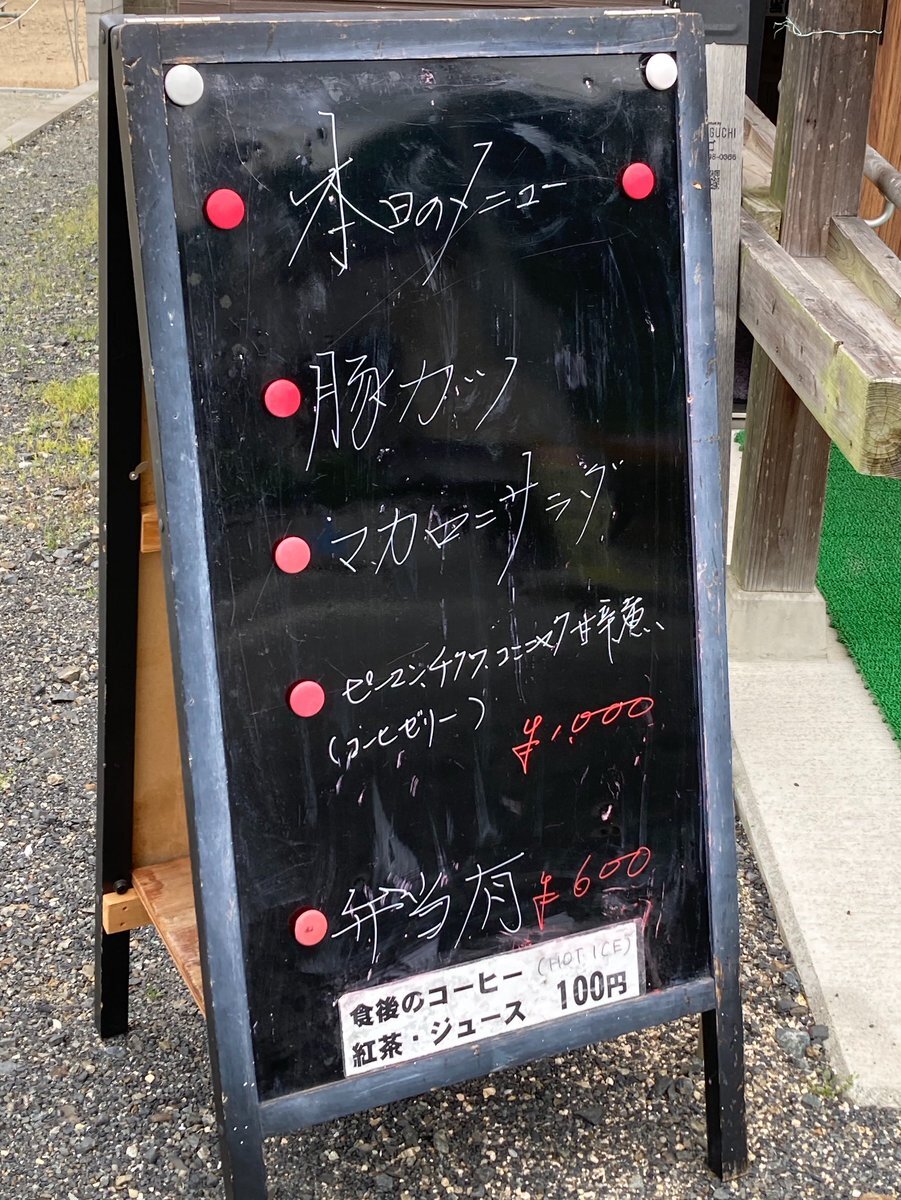 本日のメニュー
豚カツ
マカロニサラダ
ピーマン、チクワ、コンニャク甘辛煮、
(コーヒゼリー)
¥1,000
弁当有 ¥600
食後のコーヒー (HOT, ICE)
紅茶・ジュース 100円
GUCHI